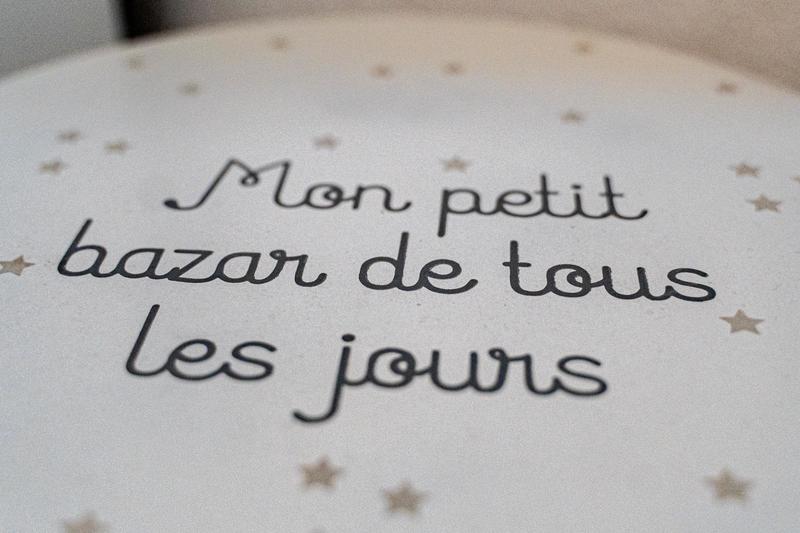 Mon petit
bazar de tous
les jours